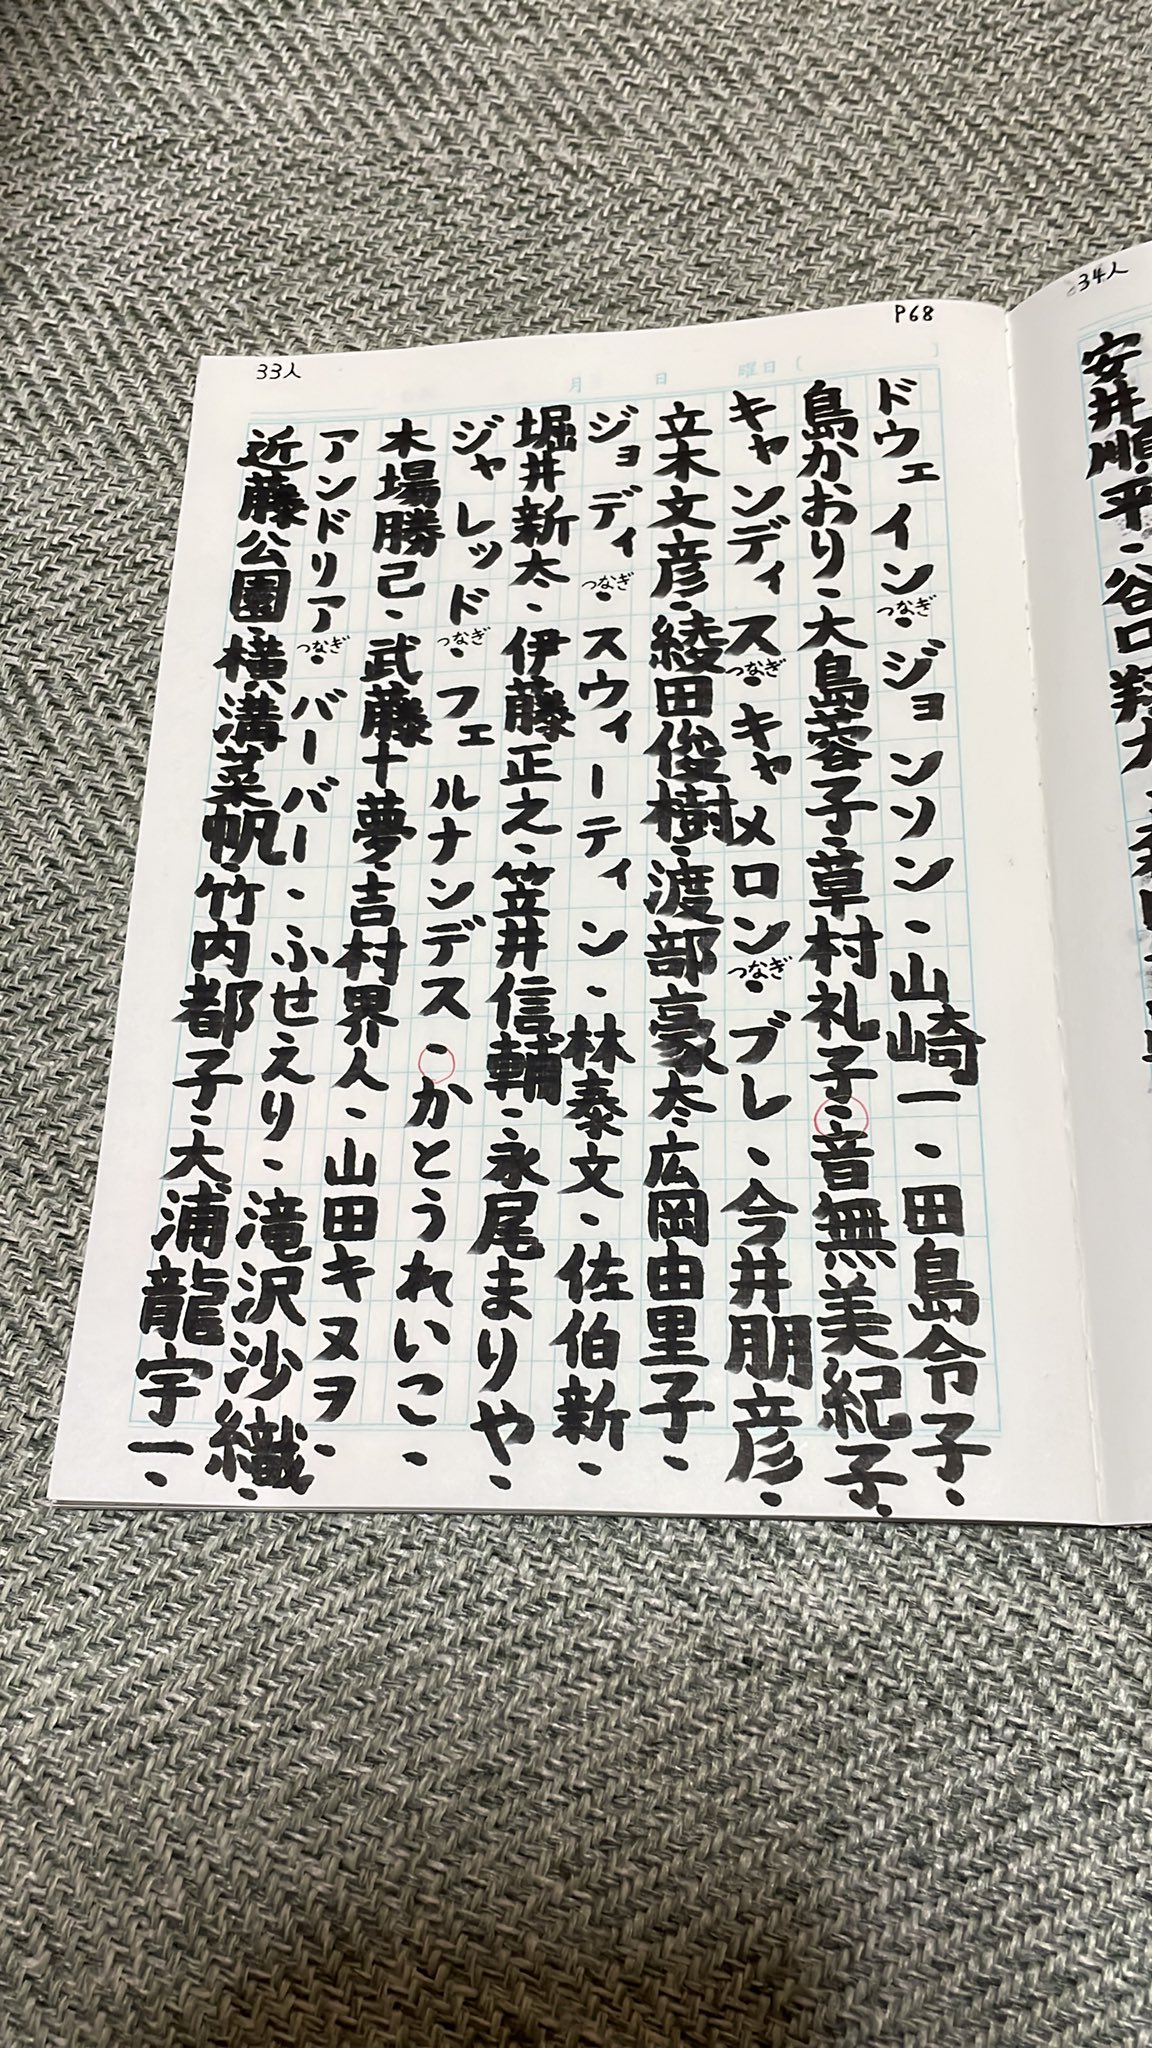 P68
33人
月 日 曜日 ( )
ドウェイン・つなぎジョンソン・山崎一・田島令子・
島かおり・大島蓉子・草村礼子・音無美紀子・
キャンディス・つなぎキャメロン・つなぎブレ・今井朋彦・
立木文彦・綾田俊樹・渡部豪太・広岡由里子・
ジョディ・つなぎスウィーティン・林泰文・佐伯新・
堀井新太・伊藤正之・笠井信輔・永尾まりや・
ジャレッド・つなぎフェルナンデス・かとうれいこ・
木場勝己・武藤十夢・吉村界人・山田キヌヲ・
アンドリア・つなぎバーバー・ふせえり・滝沢沙織・
近藤公園・横溝菜帆・竹内都子・大浦龍宇一・
34人
安井順平・谷口翔太・